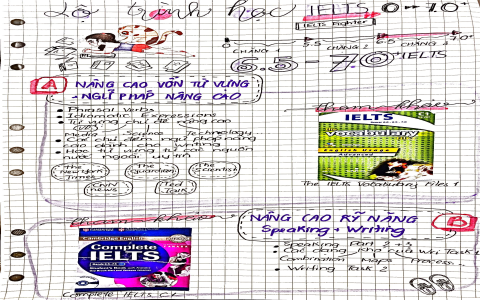 Lộ trình học IELTS 0 → 7.0+
IELTS Fighter
0 5.5 6.5 7.0+
CHẶNG 1 CHẶNG 2 CHẶNG 3
6.5 - 7.0+ IELTS
A NÂNG CAO VỐN TỪ VỰNG
+ NGỮ PHÁP NÂNG CAO
• Phrasal Verbs
• Idiomatic Expressions
• Từ vựng chủ đề nâng cao
Media Science Technology
ngữ pháp nâng
cao dành cho writing
• Học từ vựng từ nguồn
nước ngoài uy tín
The New York Times
The Guardian
The Scientist
CNN news
Ted Talk
tham khảo
IELTS
Vocabulary
English Usage
Advanced
The IELTS Vocabulary Files 1
tham khảo
Cambridge English
Complete
IELTS
Complete IELTS C1
NÂNG CAO KỸ NĂNG B
Speaking + Writing
• Speaking Part 2 + 3
• Các dạng khó của Wri. Task 1
Combination Maps Process
• Writing Task 2